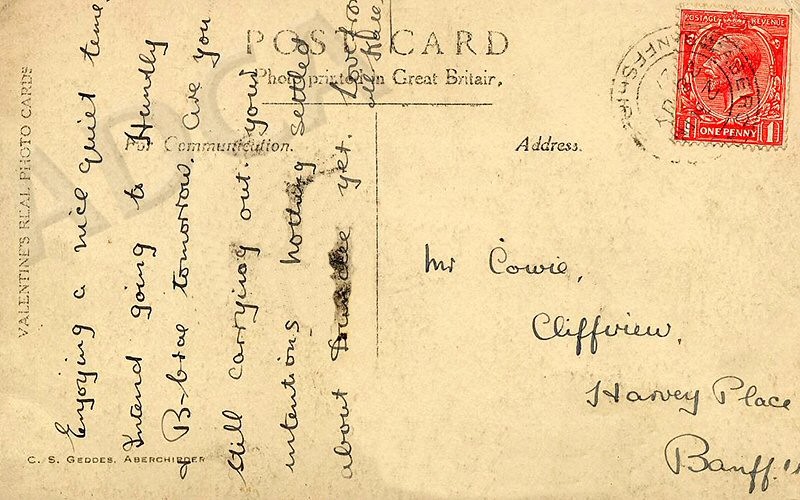 POST CARD
Photo printed in Great Britain.
For Communication.
Address.
VALENTINE'S REAL PHOTO CARDS
C. S. GEDDES, ABERCHIRDER
POSTAGE REVENUE
ONE PENNY
1 1
BANFFSHIRE
Enjoying a nice quiet time
Intend going to Huntly
& B-brae tomorrow. Are you
still carrying out your
intentions nothing settled
about yet. Love from
all
Mr Cowie,
Cliffview,
Harvey Place
Banff.